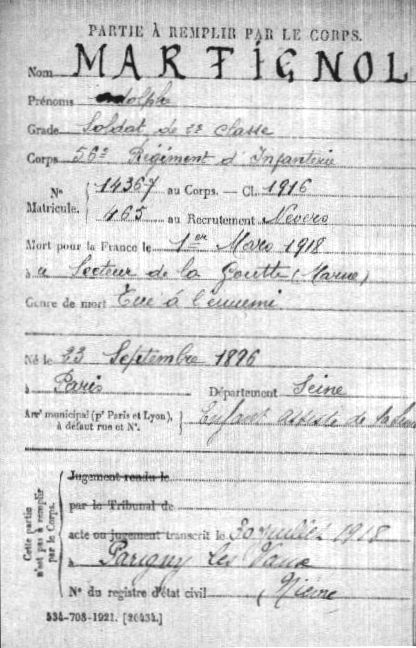 PARTIE À REMPLIR PAR LE CORPS.
Nom MARTIGNOL
Prénoms Adolphe
Grade Soldat de 2e classe
Corps 56e Régiment d'Infanterie
No Matricule. { 14367 au Corps. — Cl. 1916
465 au Recrutement Nevers
Mort pour la France le 1er Mars 1918
à a Secteur de la Goutte (Marne)
Genre de mort Tué à l'ennemi
Né le 23 Septembre 1896
à Paris Département Seine
Arrt municipal (pr Paris et Lyon), à défaut rue et No. } Enfant assisté de la Seine
Cette partie n'est pas à remplir par le Corps.
Jugement rendu le
par le Tribunal de
acte ou jugement transcrit le 30 juillet 1918
à Parigny les Vaux
No du registre d'état civil (Nièvre
534-708-1921. [26434.]